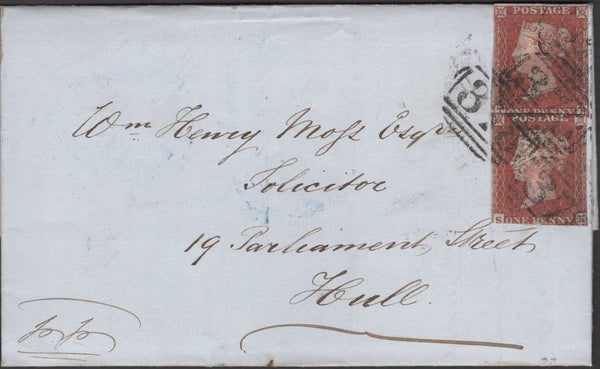 POSTAGE
ONE PENNY
POSTAGE
S ONE PENNY
3
Wm Henry Moss Esqr
Solicitor
19 Parliament Street
Hull.
p.p.